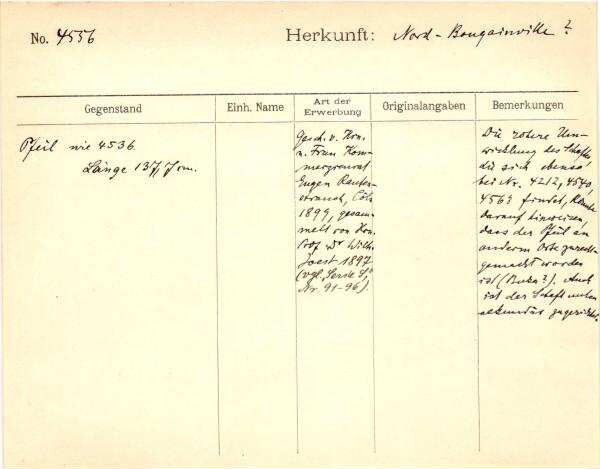 No. 4556 Herkunft: Nord-Bougainville?
Gegenstand
Einh. Name
Art der
Erwerbung
Originalangaben
Bemerkungen
Pfeil wie 4536.
Länge 137,7 cm.
Gesch. v. Hrn.
u. Frau Kom-
merzienrat
Eugen Rauten-
strauch, Cöln
1899, gesam-
melt von Hrn.
Prof Dr Wilh.
Joest 1897
(vgl. Serie
Nr 91-96).
Die rotere Um-
wicklung des Schaftes
die sich ebenso
bei Nr. 4212, 4540,
4563 findet, könnte
darauf hinweisen,
dass der Pfeil an
anderm Orte zurecht-
gemacht worden
ist (Buka?). Auch
ist der Schaft unten